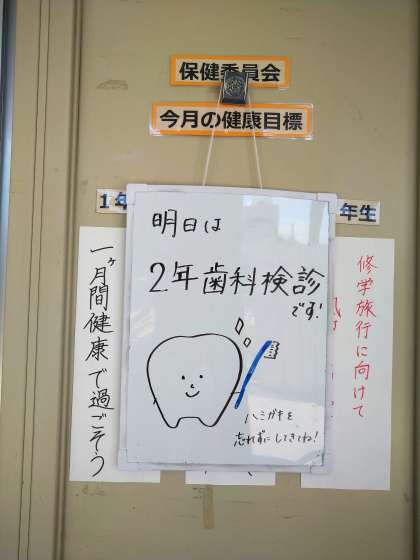 保健委員会
今月の健康目標
1年
年生
明日は
2年歯科検診
です!
ハミガキを
忘れずにしてきてね!
一ヶ月間健康で過ごそう
修学旅行に向けて